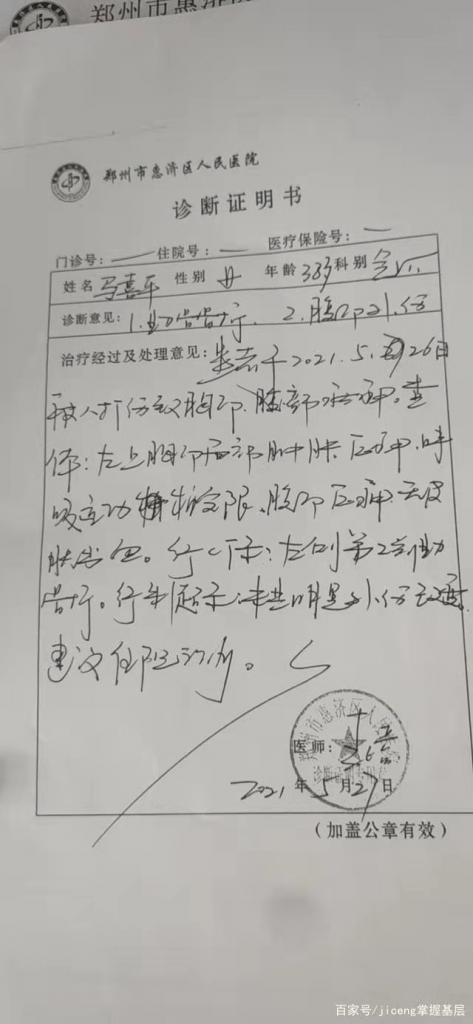 郑州市惠济区人民医院
诊断证明书
门诊号: — 住院号: — 医疗保险号: —
姓名 马喜平 性别 女 年龄 38岁 科别
诊断意见: 1. 肋骨骨折 2. 腹部外伤
治疗经过及处理意见: 患者于2021.5.月26日
被人打伤致胸部、腹部疼痛。查
体: 左上胸部局部肿胀、压痛、呼
吸主动 受限、腹部压痛、皮
肤 。行CT示: 左侧第2前肋
骨折。行 超示: 未见明显外伤
建议住院治疗。
医师:
2021年5月27日
郑州市惠济区人民医院
诊断证明专用章
(加盖公章有效)
百家号/jiceng掌握基层